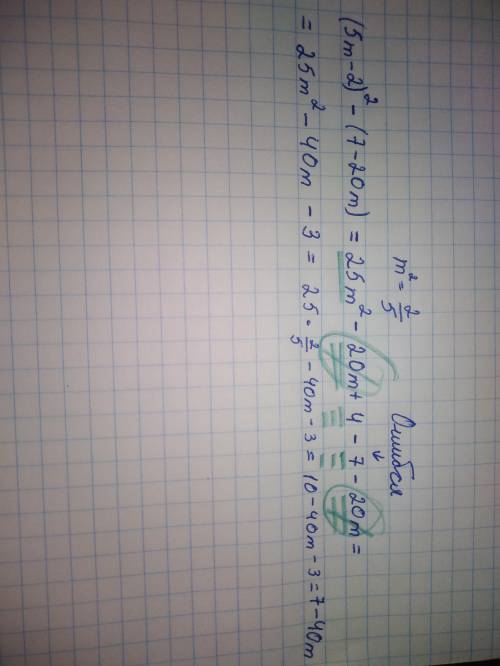 m² = 2/5
Ошибся ↓
(5m-2)² - (7-20m) = 25m² - 20m + 4 - 7 - 20m =
= 25m² - 40m - 3 = 25 · 2/5 - 40m - 3 = 10 - 40m - 3 = 7 - 40m